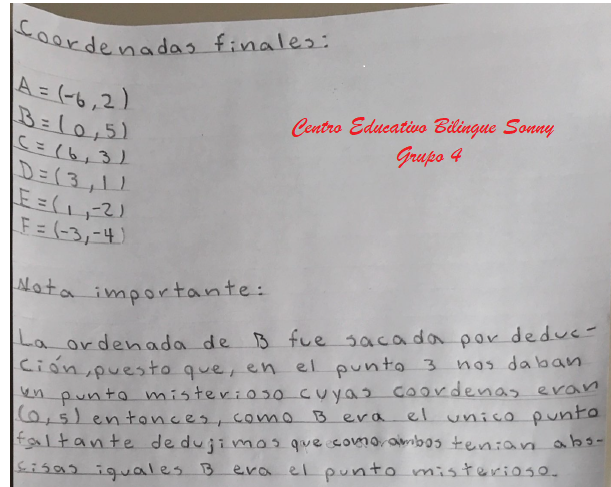 Coordenadas finales:
A = (-6, 2)
B = (0, 5)
C = (6, 3)
D = (3, 1)
E = (1, -2)
F = (-3, -4)
Centro Educativo Bilingue Sonny
Grupo 4
Nota importante:
La ordenada de B fue sacada por deduc-
ción, puesto que, en el punto 3 nos daban
un punto misterioso cuyas coordenas eran
(0,5) entonces, como B era el unico punto
faltante dedujimos que como ambos tenian abs-
cisas iguales B era el punto misterioso.